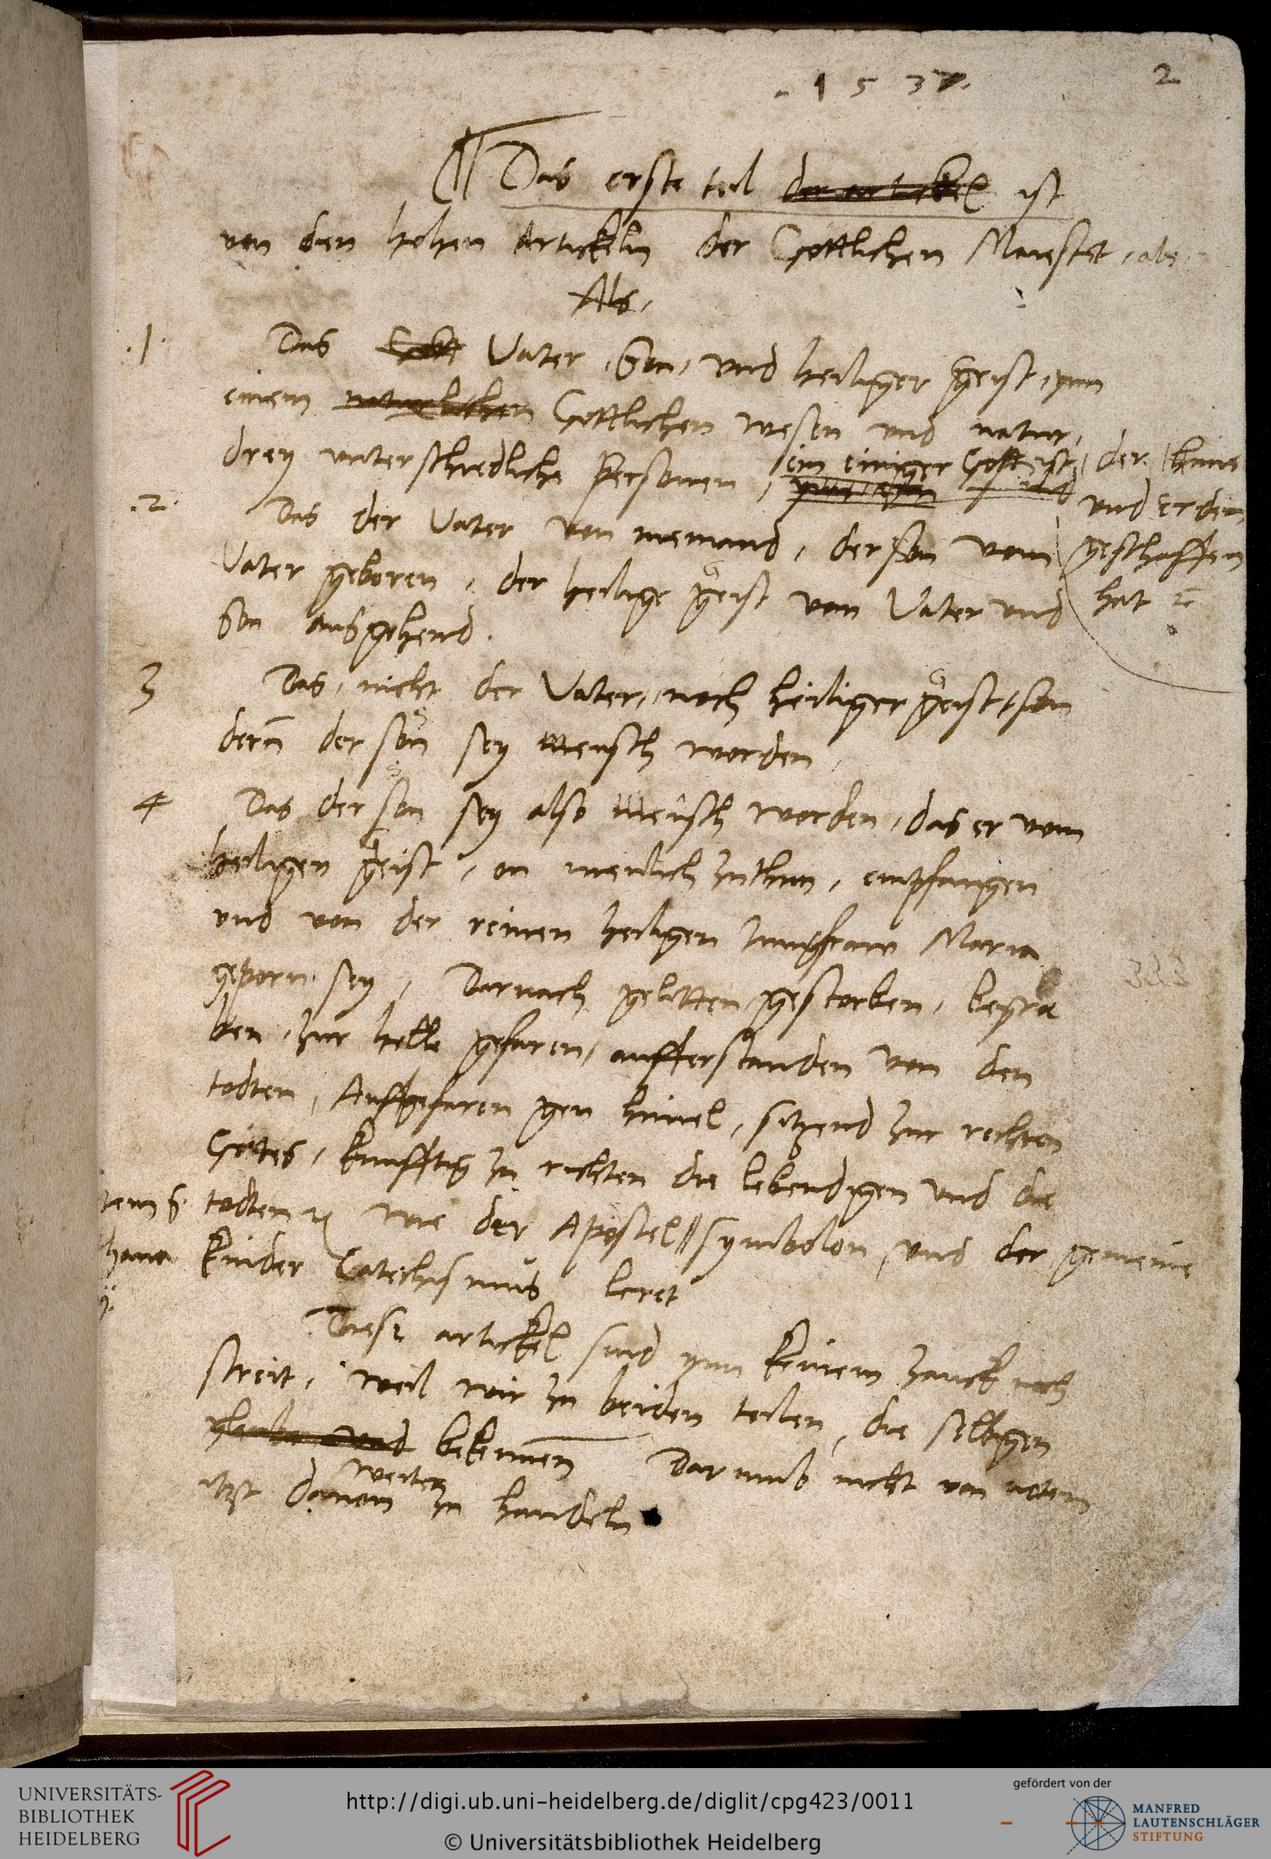 1537.
2
Das erste teil der artickel ist
von den hohen Artickeln der Gottlichen Maiestet, als
Als,
.1. Das Gott Vater, Son, und heiliger geist, ynn
einem naturlichen Gottlichen wesen und natur,
drey unterschiedliche Personen, ein einiger Gott ist, der himel
und erden
geschaffen
hat ec
.2. Das der Vater von niemand, der son vom
Vater geboren, der heilige geist vom Vater und
Son ausgehend.
3 Das, nicht der Vater, noch heiliger geist, son
dern der son sey mensch worden,
4 Das der son sey also mensch worden, das er vom
heiligen geist, on menlich zuthun, empfangen
und von der reinen heiligen Jungfraw Maria
geporn sey, Darnach gelitten, gestorben, begra
ben, zur helle gefaren, aufferstanden von den
todten, Auffgefaren gen himel, sitzend zur rechten
Gottes, kunfftig zu richten die lebendigen und die
todten ec wie der Apostel symbolon, und der gemeine
kinder Catechismus leret
Diese artickel sind ynn keinem zanck noch
streit, weil wir zu beiden teilen, die selbigen
gleuben und bekennen Darumb nicht von noten
itzt dauon weiter zu handeln
UNIVERSITÄTS-
BIBLIOTHEK
HEIDELBERG
http://digi.ub.uni-heidelberg.de/diglit/cpg423/0011
© Universitätsbibliothek Heidelberg
gefördert von der
MANFRED
LAUTENSCHLÄGER
STIFTUNG